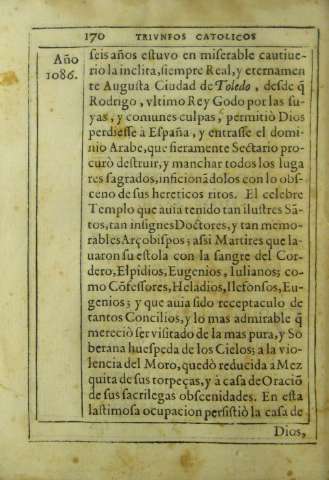 170 TRIVNFOS CATOLICOS
Año
1086.
seis años estuvo en miserable cautiue-
rio la inclita, siempre Real, y eternamen
te Augusta Ciudad de Toledo, desde q̃
Rodrigo, vltimo Rey Godo por las su-
yas, y comunes culpas, permitiò Dios
perdiesse à España, y entrasse el domi-
nio Arabe, que fieramente Sectario pro-
curò destruir, y manchar todos los luga
res sagrados, inficionãdolos con lo obs-
ceno de sus hereticos ritos. El celebre
Templo que auia tenido tan ilustres Sã-
tos, tan insignes Doctores, y tan memo-
rables Arçobispos; assi Martires que la-
uaron su estola con la sangre del Cor-
dero, Elpidios, Eugenios, Iulianos; co-
mo Cõfessores, Heladios, Ilefonsos, Eu-
genios; y que auia sido receptaculo de
tantos Concilios, y lo mas admirable q̃
mereciò ser visitado de la mas pura, y So
berana huespeda de los Cielos; a la vio-
lencia del Moro, quedò reducida a Mez
quita de sus torpeças, y à casa de Oraciõ
de sus sacrilegas obscenidades. En esta
lastimosa ocupacion persistiò la casa de
Dios,